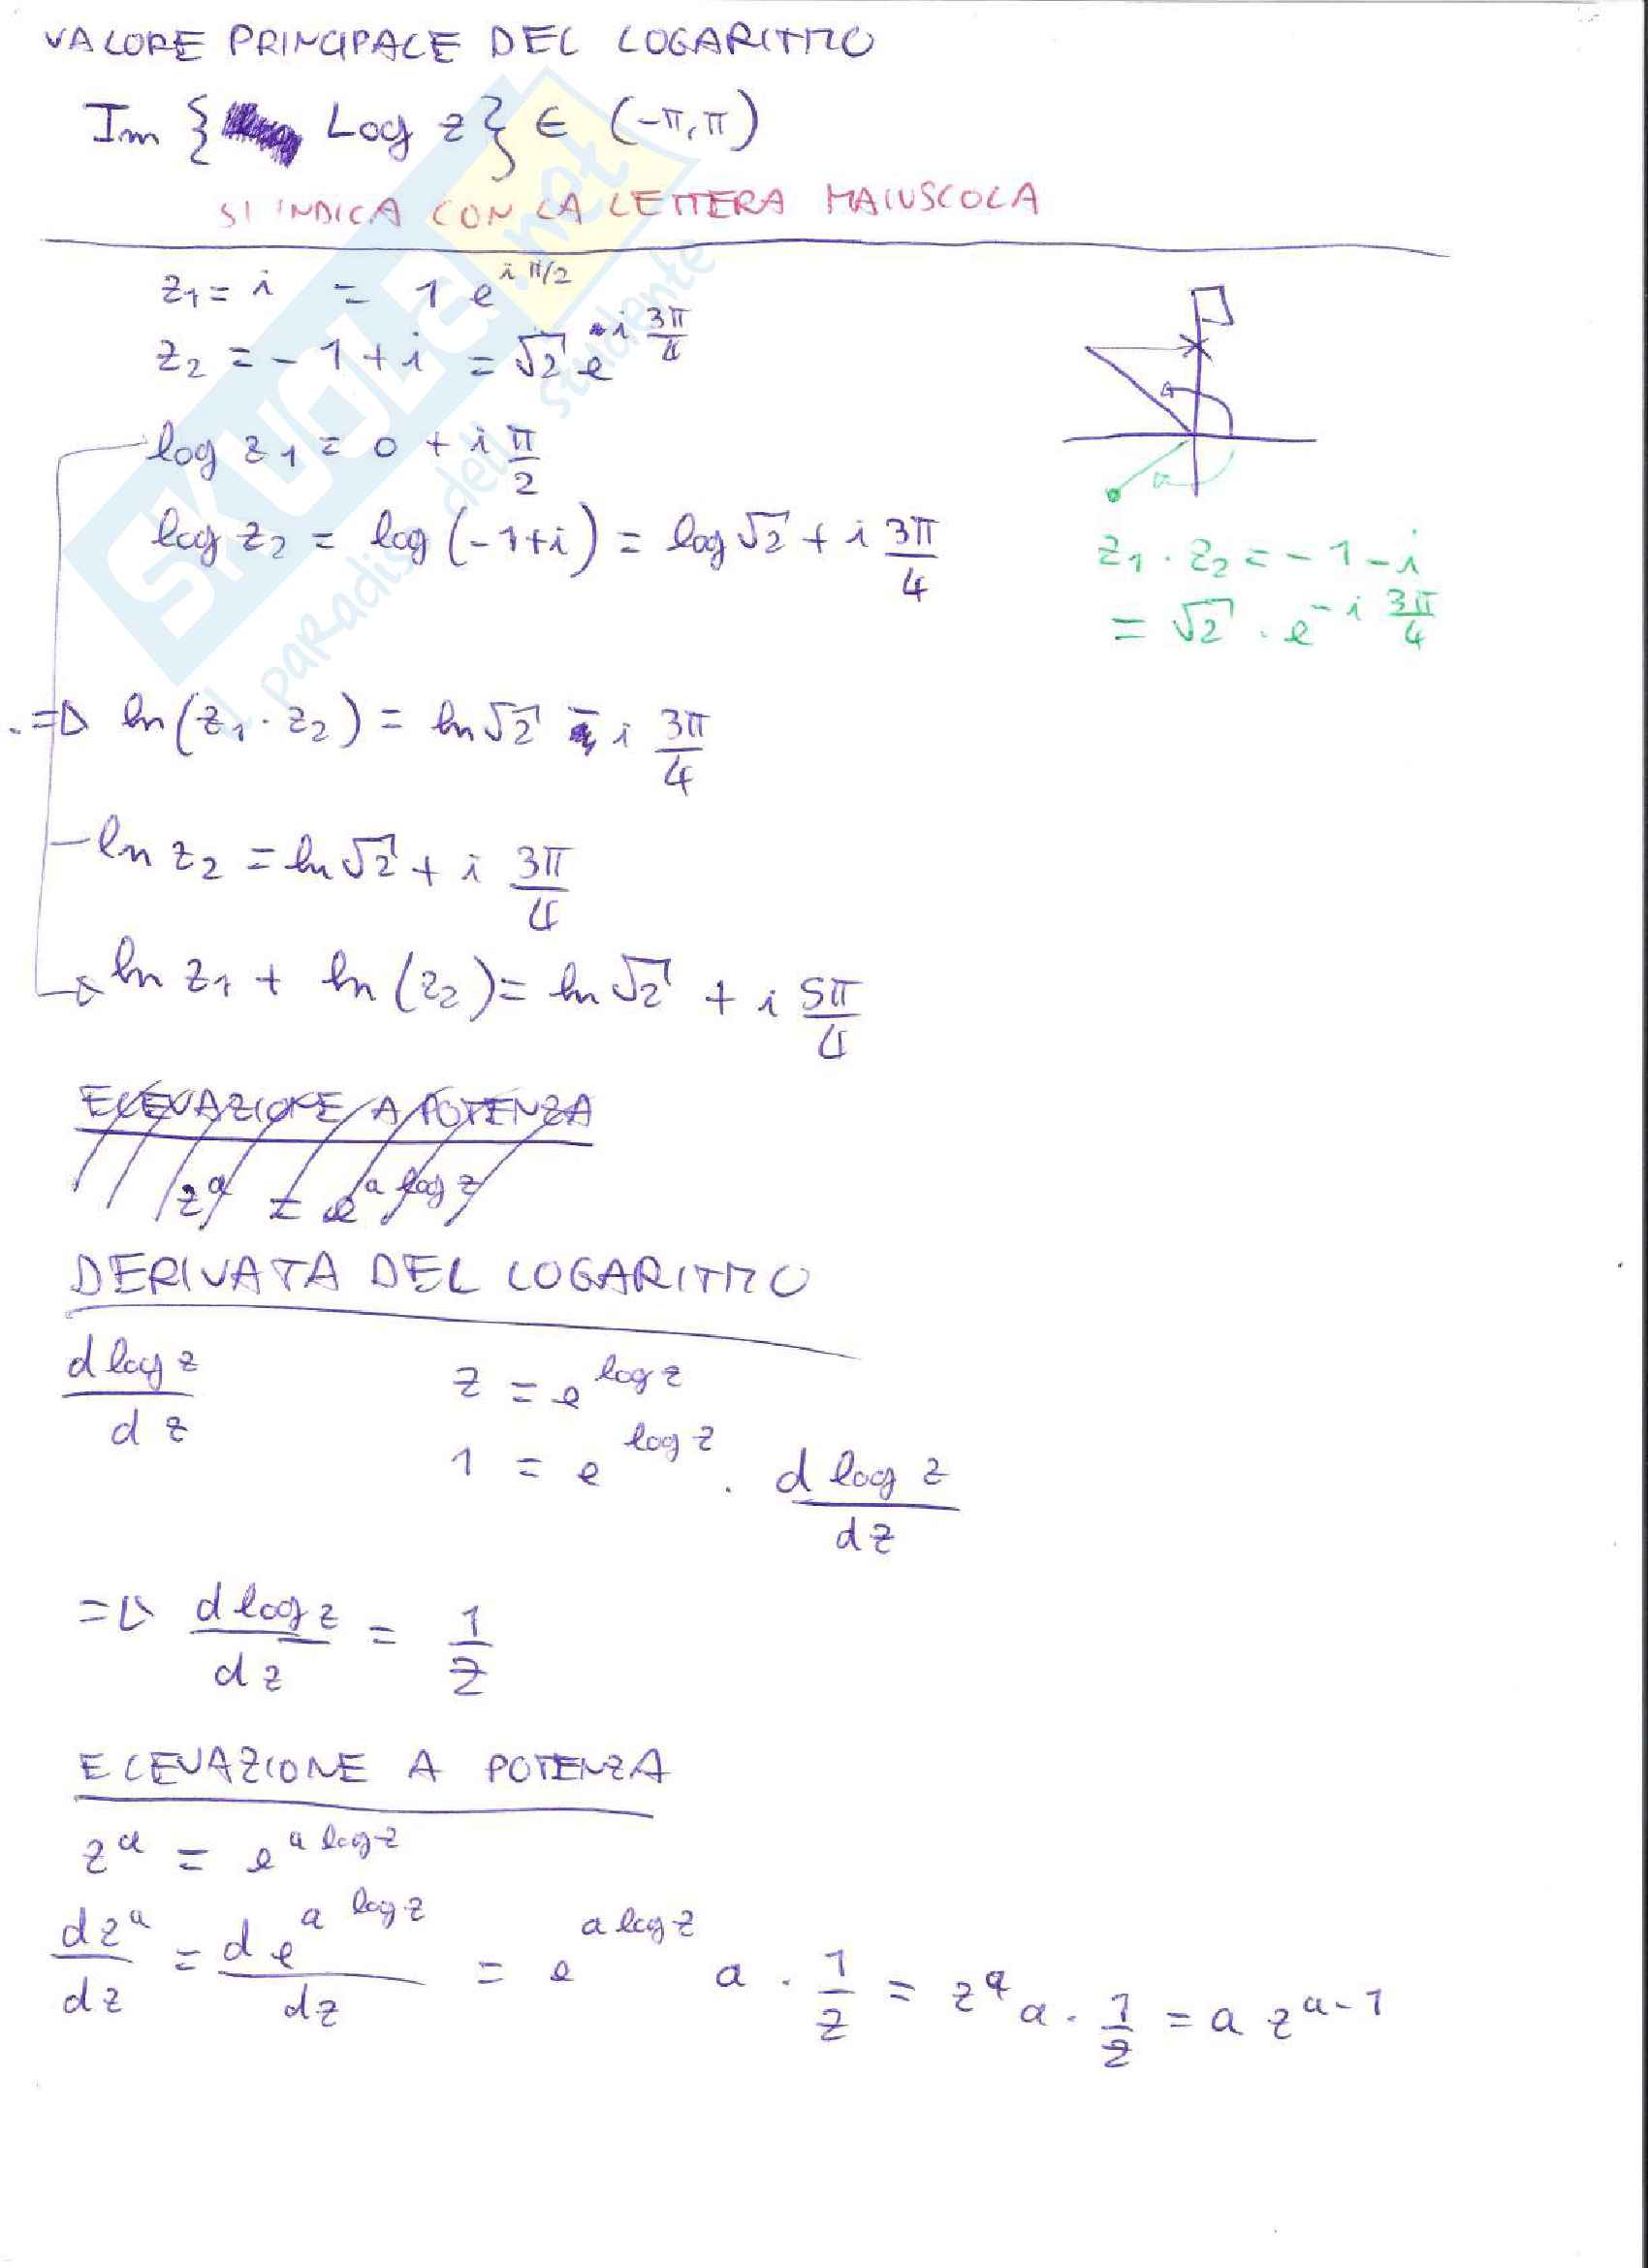 VALORE PRINCIPALE DEL LOGARITMO
Im { Log z } ∈ (-π, π)
SI INDICA CON LA LETTERA MAIUSCOLA
z₁ = i = 1 e^{i π/2}
z₂ = -1 + i = √2 e^{i 3π/4}
log z₁ = 0 + i π/2
log z₂ = log (-1+i) = log √2 + i 3π/4
z₁ · z₂ = -1 - i
= √2 · e^{-i 3π/4}
⇒ ln(z₁ · z₂) = ln √2 - i 3π/4
ln z₂ = ln √2 + i 3π/4
ln z₁ + ln (z₂) = ln √2 + i 5π/4
ELEVAZIONE A POTENZA
z^a = e^{a log z}
DERIVATA DEL LOGARITMO
d log z / dz
z = e^{log z}
1 = e^{log z} · d log z / dz
⇒ d log z / dz = 1/z
ELEVAZIONE A POTENZA
z^a = e^{a log z}
dz^a / dz = d e^{a log z} / dz = e^{a log z} a · 1/z = z^a a · 1/z = a z^{a-1}
SKUOLA.net
il paradiso dello studente